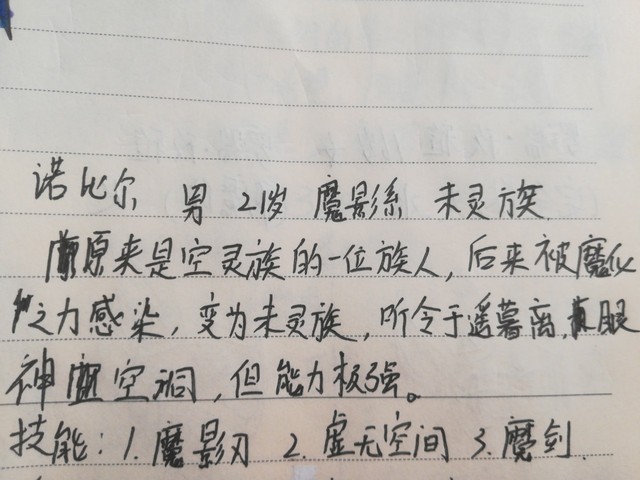 诺比尔 男 21岁 魔影系 未灵族
原来是空灵族的一位族人，后来被魔化
之力感染，变为未灵族，听令于遥暮离，眼
神空洞，但能力极强。
技能：1.魔影刃 2.虚无空间 3.魔剑.